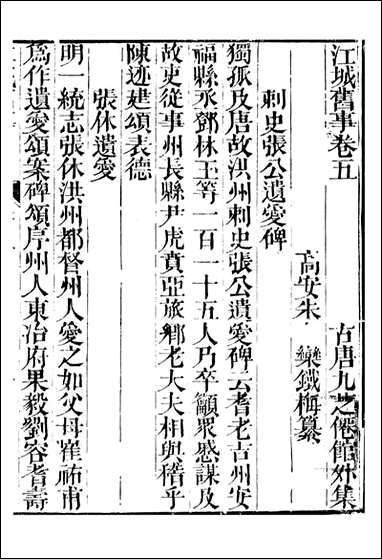 江城舊事卷五　古唐九芝僊館外集
高安朱　欒鐵梅纂
刺史張公遺愛碑
獨孤及唐故洪州刺史張公遺愛碑云耆老古州安
福縣丞鄧林玉等一百一十五人乃卒籲眾感謀及
故吏從事州長縣尹虎賁亞旅鄉老大夫相與稽乎
陳迹建頌表德
張休遺愛
明一統志張休洪州都督州人愛之如父母崔祐甫
爲作遺愛頌案碑頌序州人東冶府果毅劉容耆壽